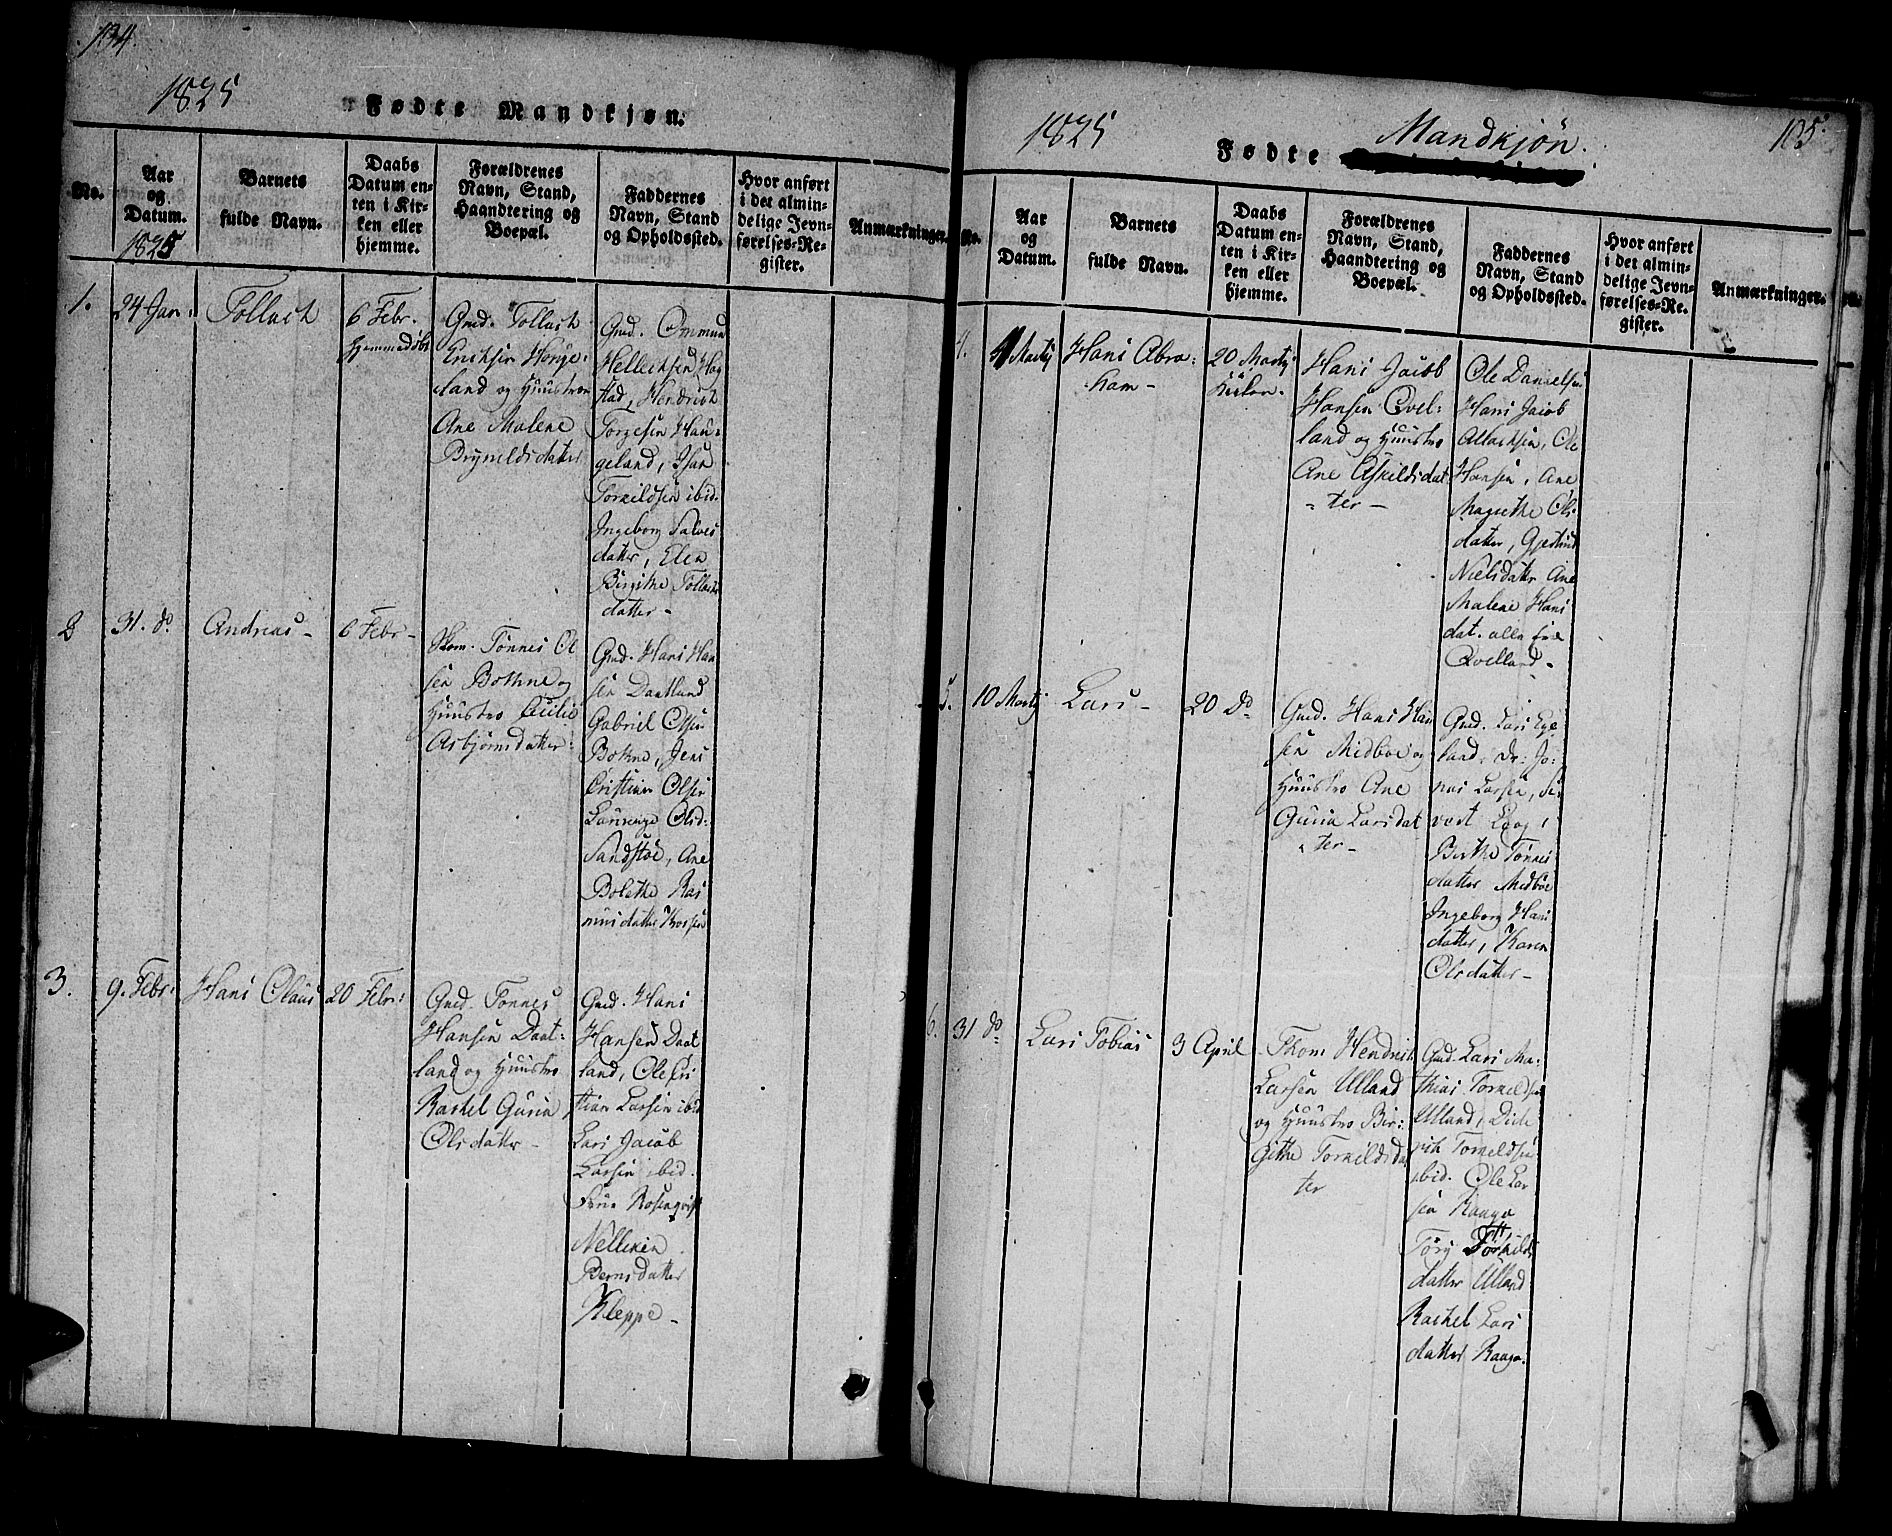 134.
1825
Fødte Mandkjøn.
No.
Aar
og
Datum.
1825
Barnets
fulde Navn.
Daabs
Datum en-
ten i Kir-
ken eller
hjemme.
Forældrenes
Navn, Stand,
Haandtering og
Boepæl.
Faddernes
Navn, Stand
og Opholdssted.
Hvor anført
i det almin-
delige Jevn-
førelses-Re-
gister.
Anmærkninger.
1.
24 Jan:
Tollach
6 Febr.
Hjemmedøbt
Gmd. Tollach
Erichsen Houge:
land og Huustroe
Ane Malene
Brynildsdatter
Gmd. Ommun
Hellechsen
Hendrich
Torgesen Hau:
geland, Isac
Torkildsen ibid.
Ingeborg Salves
datter, Elen
Birgithe Tollachs
datter -
2
31. do.
Andreas -
6 Febr -
Tønnes Ol
sen Bothne og
Huustro Cecilie
Asbjørnsdatter:
Gmd. Hans Han
sen Daatland
Gabriel Olsen
Bothne, Jens
Cristian Olsen
Laurenze Olsd:
Sandstøe, Ane
Bolethe Ras
musdatter
3.
9. Febr:
Hans Olaus
20 Febr:
Gmd. Tønnes
Hansen Daat:
land og Huustro
Rachel Guria
Olsdatter -
Gmd. Hans
Hansen Daat
land, Ole Cri
stian Larsen ibid
Lars Jacob
Larsen ibid.
Frue Rosenqvist
Nelleken
Berns datter
Kleppe -
1825
Fødte Mandkjøn.
105.
No.
Aar
og
Datum.
Barnets
fulde Navn.
Daabs
Datum en-
ten i Kir-
ken eller
hjemme.
Forældrenes
Navn, Stand,
Haandtering og
Boepæl.
Faddernes
Navn, Stand
og Opholdssted.
Hvor anført
i det almin-
delige Jevn-
førelses-Re-
gister.
Anmærkninger.
4.
Martj
Hans Abra:
ham -
20 Martj
Kirken.
Hans Jacob
Hansen Qvel:
land og Huustro
Ane Askildsdat
- ter -
Ole Danielsen
Hans Jacob
Atlachsen, Ole
Hansen, Ane
Magrethe Ols
datter, Gjertrud
Nielsdatter Ane
Malene Hans
dat. alle fra
Qvelland -
5.
10 Martj
Lars -
20 do.
Gmd. Hans Han
sen Midboe og
Huustro Ane
Guria Larsdat
- ter -
Gmd. Lars Ege
land, Dr: Jo:
nas Larsen,
Berthe Tønnes
datter Midboe
Ingeborg Hans
datter, Karen
Olsdatter -
6.
31 do.
Lars Tobias
3 April
Thom Hendrich
Larsen Ulland
og Huustro Bir:
githe Torkildsdat
ter
Gmd. Lars Ma:
thias Torkildsen
Ulland, Died
rich Torkeldsen
ibid. Ole Lar
sen Raaga
Tory Torkilds
datter Ulland
Rachel Lars
datter Raaga.